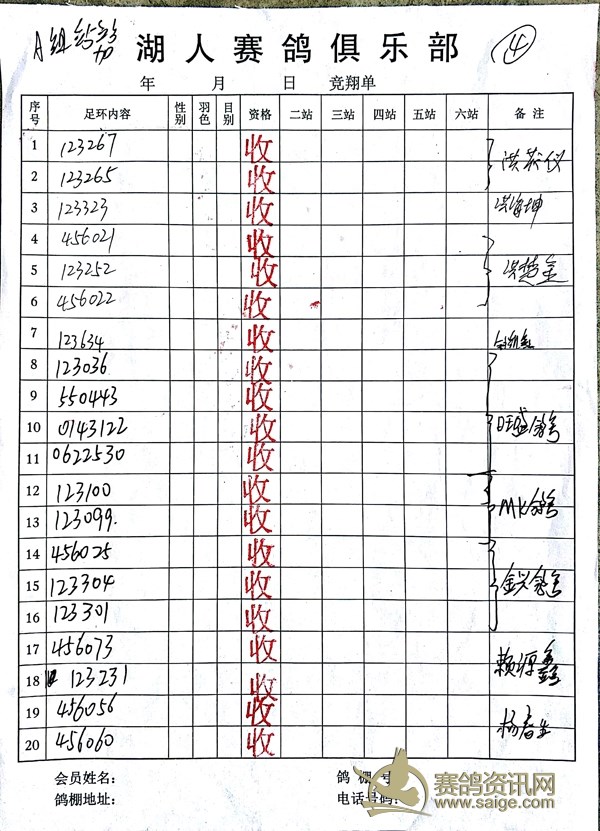 A组
④
湖人赛鸽俱乐部
年 月 日 竞翔单
序号 足环内容 性别 羽色 目别 资格 二站 三站 四站 五站 六站 备注
1 123267 收
2 123265 收
3 123323 收
4 456021 收
5 123252 收
6 456022 收
7 123634 收
8 123036 收
9 550443 收
10 0143122 收 旺盛鸽舍
11 0622530 收
12 123100 收
13 123099. 收 MK鸽舍
14 456025 收
15 123304 收 金兴鸽舍
16 123301 收
17 456073 收
18 123231 收 赖源鑫
19 456056 收
20 456060 收 杨春生
会员姓名: 鸽棚号:
鸽棚地址: 电话号码:
赛鸽资讯网
www.saige.com